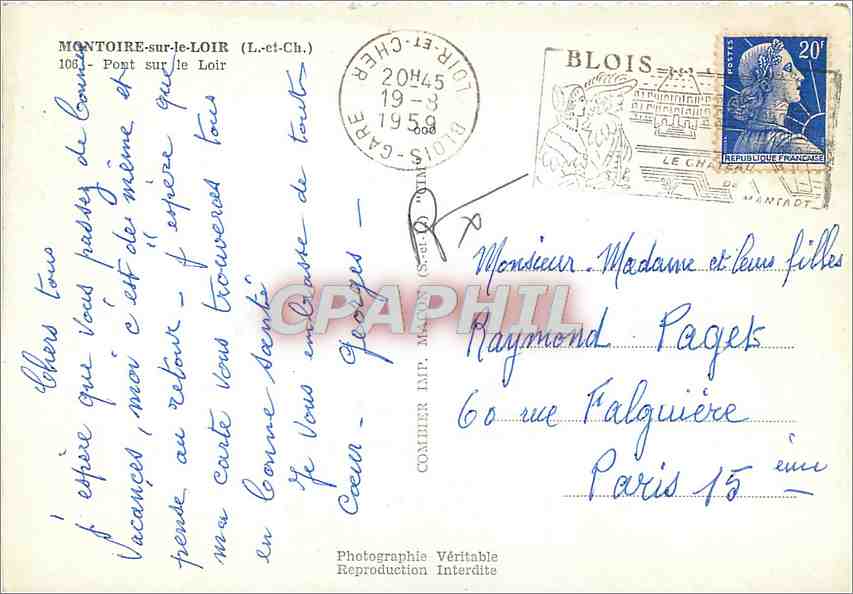 MONTOIRE-sur-le-LOIR (L.-et-Ch.)
106. - Pont sur le Loir
Chers tous
J'espère que vous passez de bonnes
vacances, moi c'est de même et
pense au retour - J'espère que
ma carte vous trouveras tous
en bonne santé
Je vous embrasse de tout
cœur - Georges -
COMBIER IMP. MACON (S.-et-L.) "CIM"
LOIR-ET-CHER
20H45
19-8
1959
BLOIS-GARE
BLOIS
LE CHATEAU
DE
MANSART
POSTES
20F
REPUBLIQUE FRANÇAISE
Monsieur. Madame et leurs filles
Raymond Pagets
60 rue Falguière
Paris 15 ème
CPAPHIL
Photographie Véritable
Reproduction Interdite